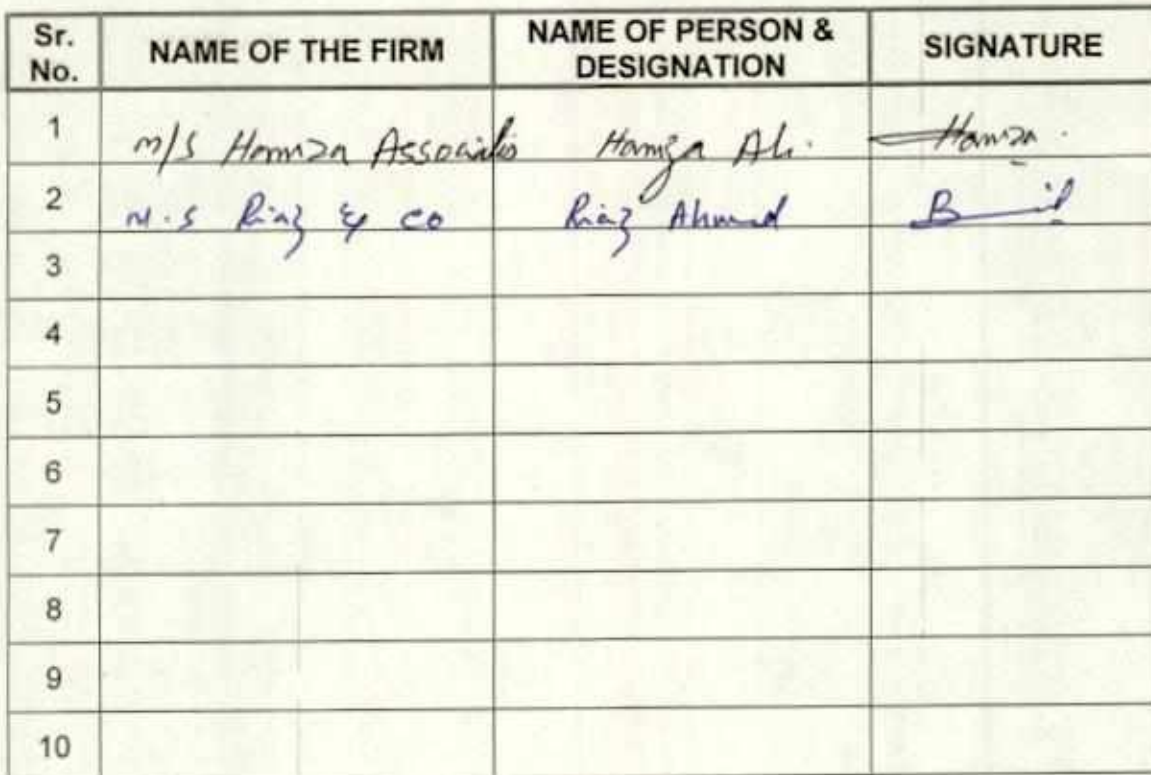 Sr. No. NAME OF THE FIRM NAME OF PERSON & DESIGNATION SIGNATURE
1 M/S Hamza Associates Hamza Ali. Hamza.
2 M.S Riaz & co Riaz Ahmad
3
4
5
6
7
8
9
10